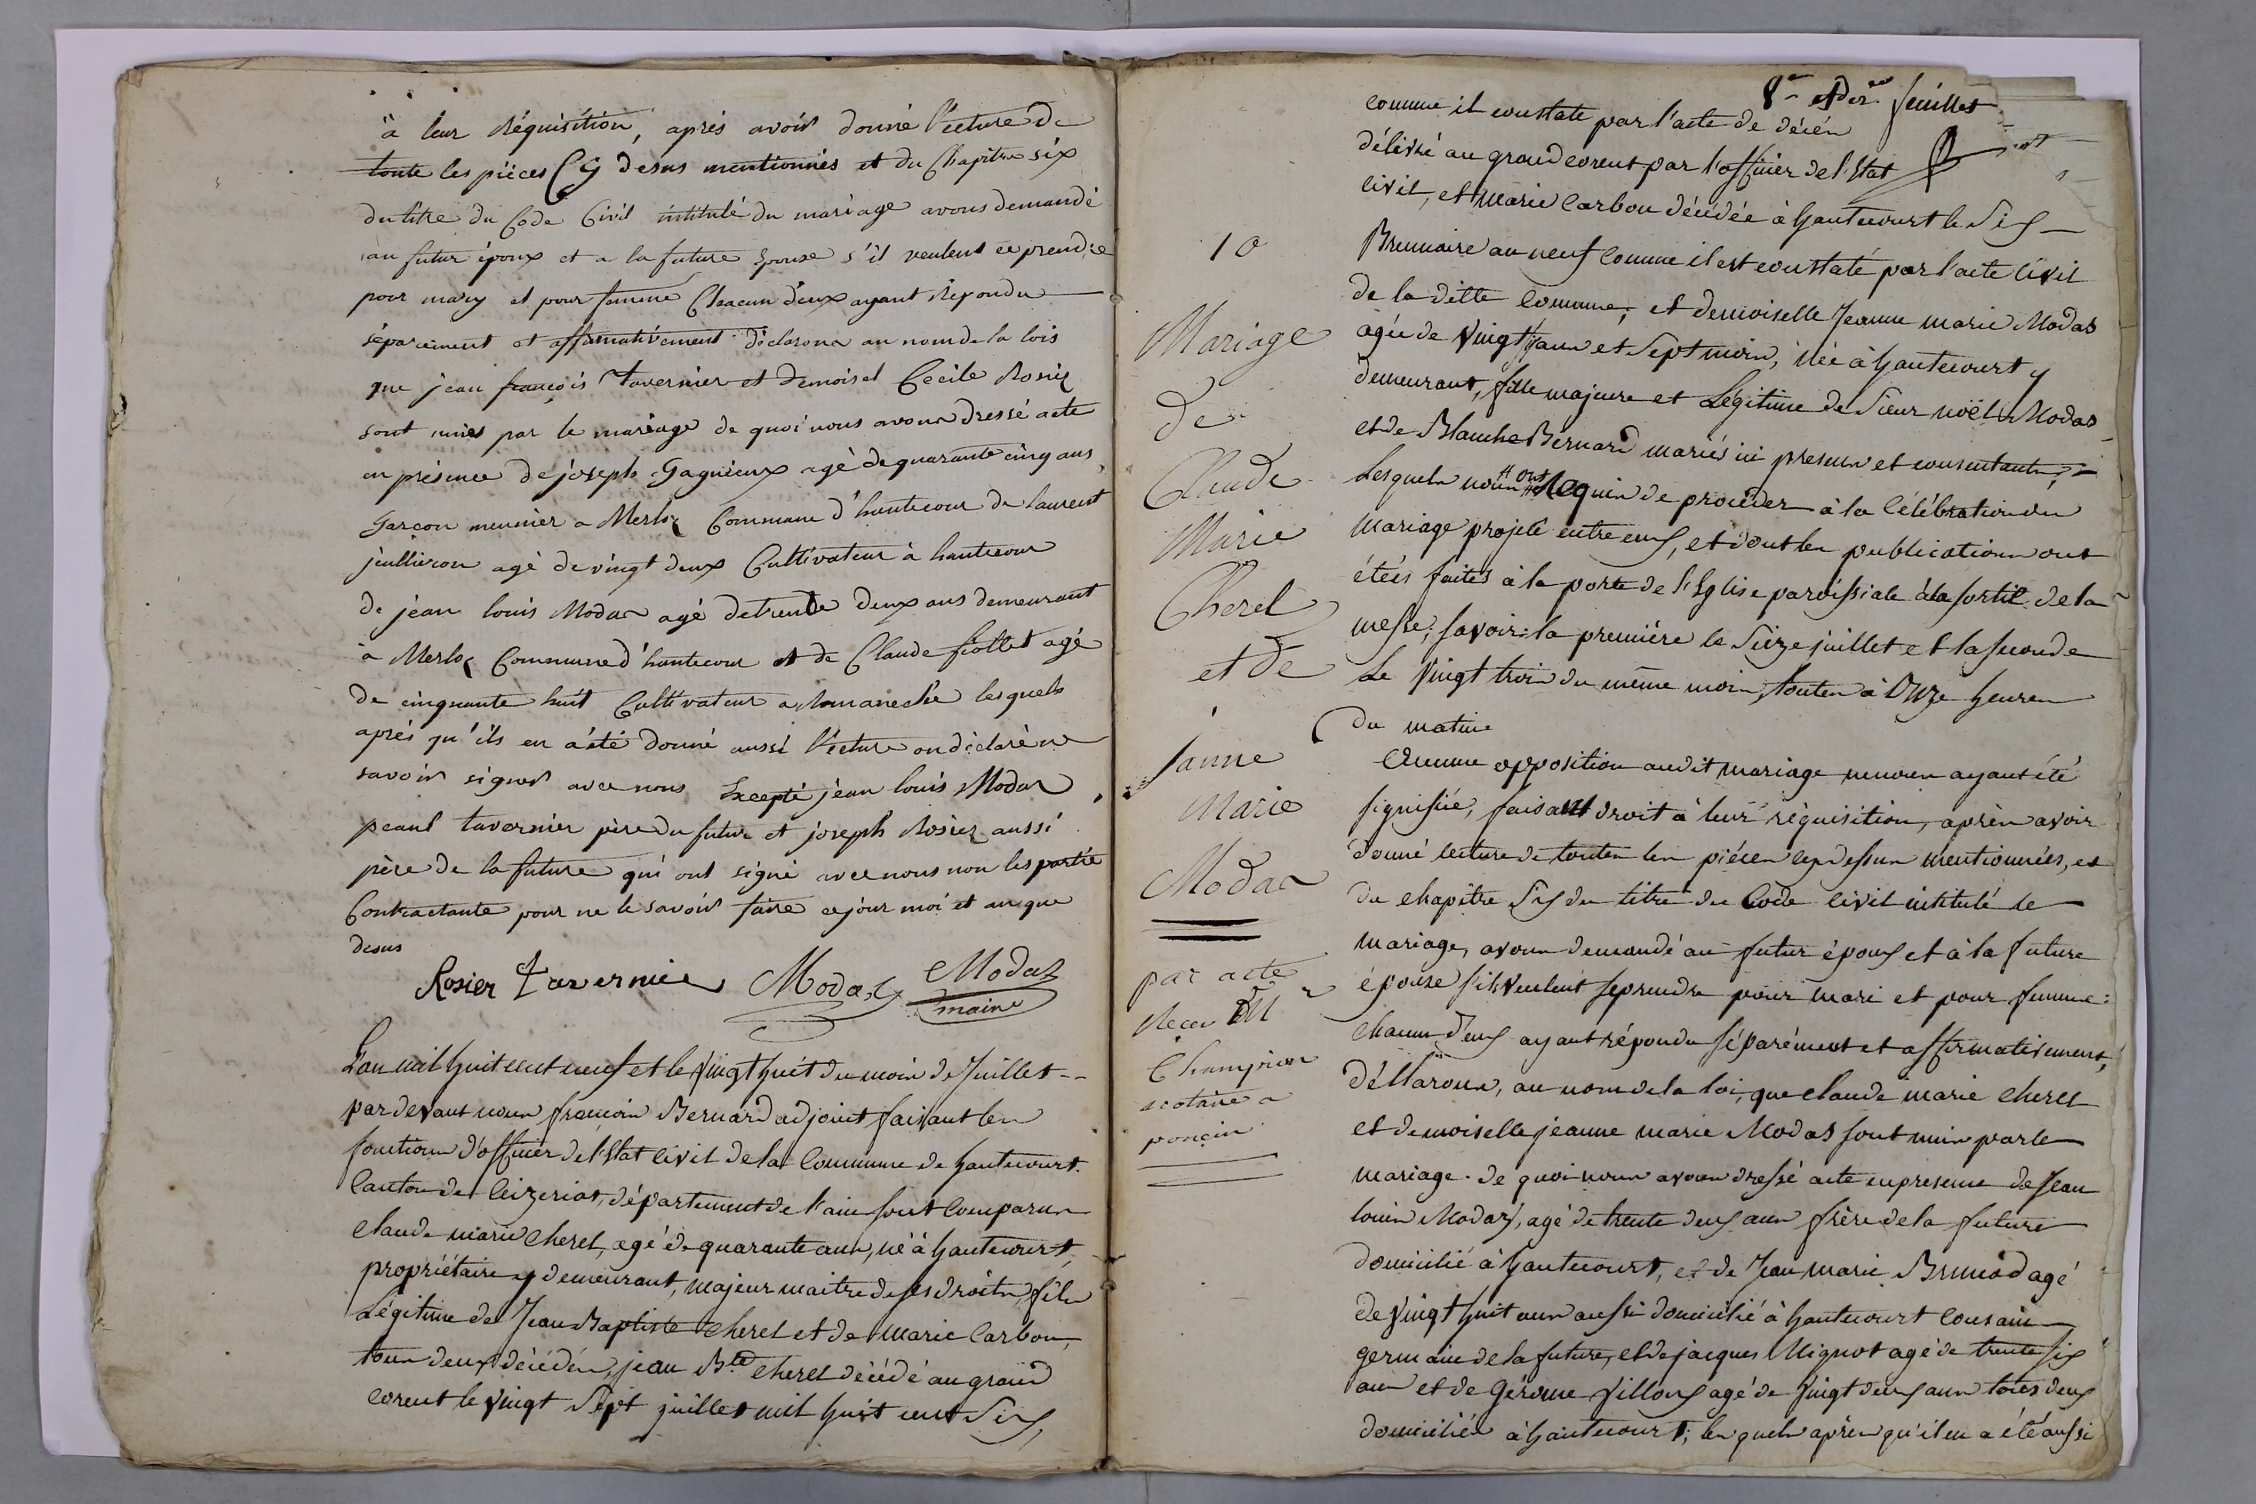 à leur réquisition, aprés avoir donné l'ecture de
toute les piéces Cy desus mentionnés et du Chapitre six
du titre du Code Civil intitulé du mariage avons demandé
au futur époux et a la future Epouse s'il veulent ce prendre
pour mary et pour femme Chacun d'eux ayant répondu
séparément et affirmativement déclarons au nom de la lois
que jean françois tavernier et demoisel Cecile Rosiez
sont unies par le mariage de quoi nous avons dressé acte
en présence de joseph Gagnieux agé de quarante cinq ans
Garçon meunier a Merloz Commune d'hautecour de laurent
juilliron agé de vingt deux Cultivateur à hautecour
de jean louis Modas agé de trente deux ans demeurant
a Merloz Commune d'hautecour et de Claude fiollet agé
de cinquante huit Cultivateur a Romaneche lesquels
aprés qu'ils en a été donné aussi l'ecture on déclaré ne
savoir signer avec nous Excepté jean louis Modas
peaul tavernier père du futur et joseph Rosiez aussi
père de la future qui ont signé avec nous non les partie
Contractante pour ne le savoir faire ce jour moi et an que
desus
Rosier tavernier Modas Modas
maire
L'an mil huit cent neuf et le vingt huit du mois de Juillet --
pardevant nous françois Bernard adjoint faisant les
fonctions d'officier de l'Etat civil de la Commune de hautecourt
Canton de Ceizeriat, département de l'ain sont Comparus
Claude marie Cheret, agé de quarante ans, né à hautecourt,
propriétaire y demeurant, majeur maitre de ses droits, fils
Légitime de Jean Baptiste Cheret et de Marie Carbon,
tous deux décédés, jean Bte Cheret décédé au grand
corent le vingt sept juillet mil huit cent Six,
8me et der. feuillet
comme il constate par l'acte de décés
délivré au grand corent par l'officier de l'Etat
civil, et Marie Carbon décédée à hautecourt le Six
Brumaire an neuf comme il est constaté par l'acte Civil
de la ditte Commune; et demoiselle Jeanne marie Modas
agée de vingt ans et sept mois, née à hautecourt y
demeurant, fille majeure et Légitime de Sieur noël Modas
et de Blanche Bernard mariés ici presens et consentants;
Lesquels nous ont requis de procéder à la Célébration du
mariage projeté entre eux, et dont les publications ont
étées faites à la porte de l'Eglise paroissiale à la sortie de la
messe; savoir: la premiére le Seize juillet et la seconde
Le vingt trois du même mois, toutes à Onze heures
du matin.
Aucune opposition audit mariage ne nous ayant été
signifiée, faisant droit à leur réquisition, après avoir
donné lecture de toutes les pièces ci-dessus mentionnées, et
du chapitre Six du titre du Code civil intitulé le
mariage, avons demandé au futur époux et à la future
épouse s'ils veulent se prendre pour mari et pour femme:
chacun d'eux ayant répondu séparément et affirmativement,
déclarons, au nom de la loi, que claude marie cheret
et demoiselle jeanne marie Modas sont unis par le
mariage. de quoi nous avons dressé acte en presence de Jean
louis Modas, agé de trente deux ans frère de la future
domicilié à hautecourt, et de Jean marie Brunod agé
de vingt huit ans aussi domicilié à hautecourt Cousain
germain de la future, et de jacques Mignot agé de trente six
ans et de Gérome Villoux agé de vingt deux ans tous deux
domiciliés à hautecourt; les quels après qu'il en a été aussi
10
Mariage
de
Claude
Marie
Cheret
et de
janne
marie
Modas
par acte
Recu M
Champion
notaire a
poncin